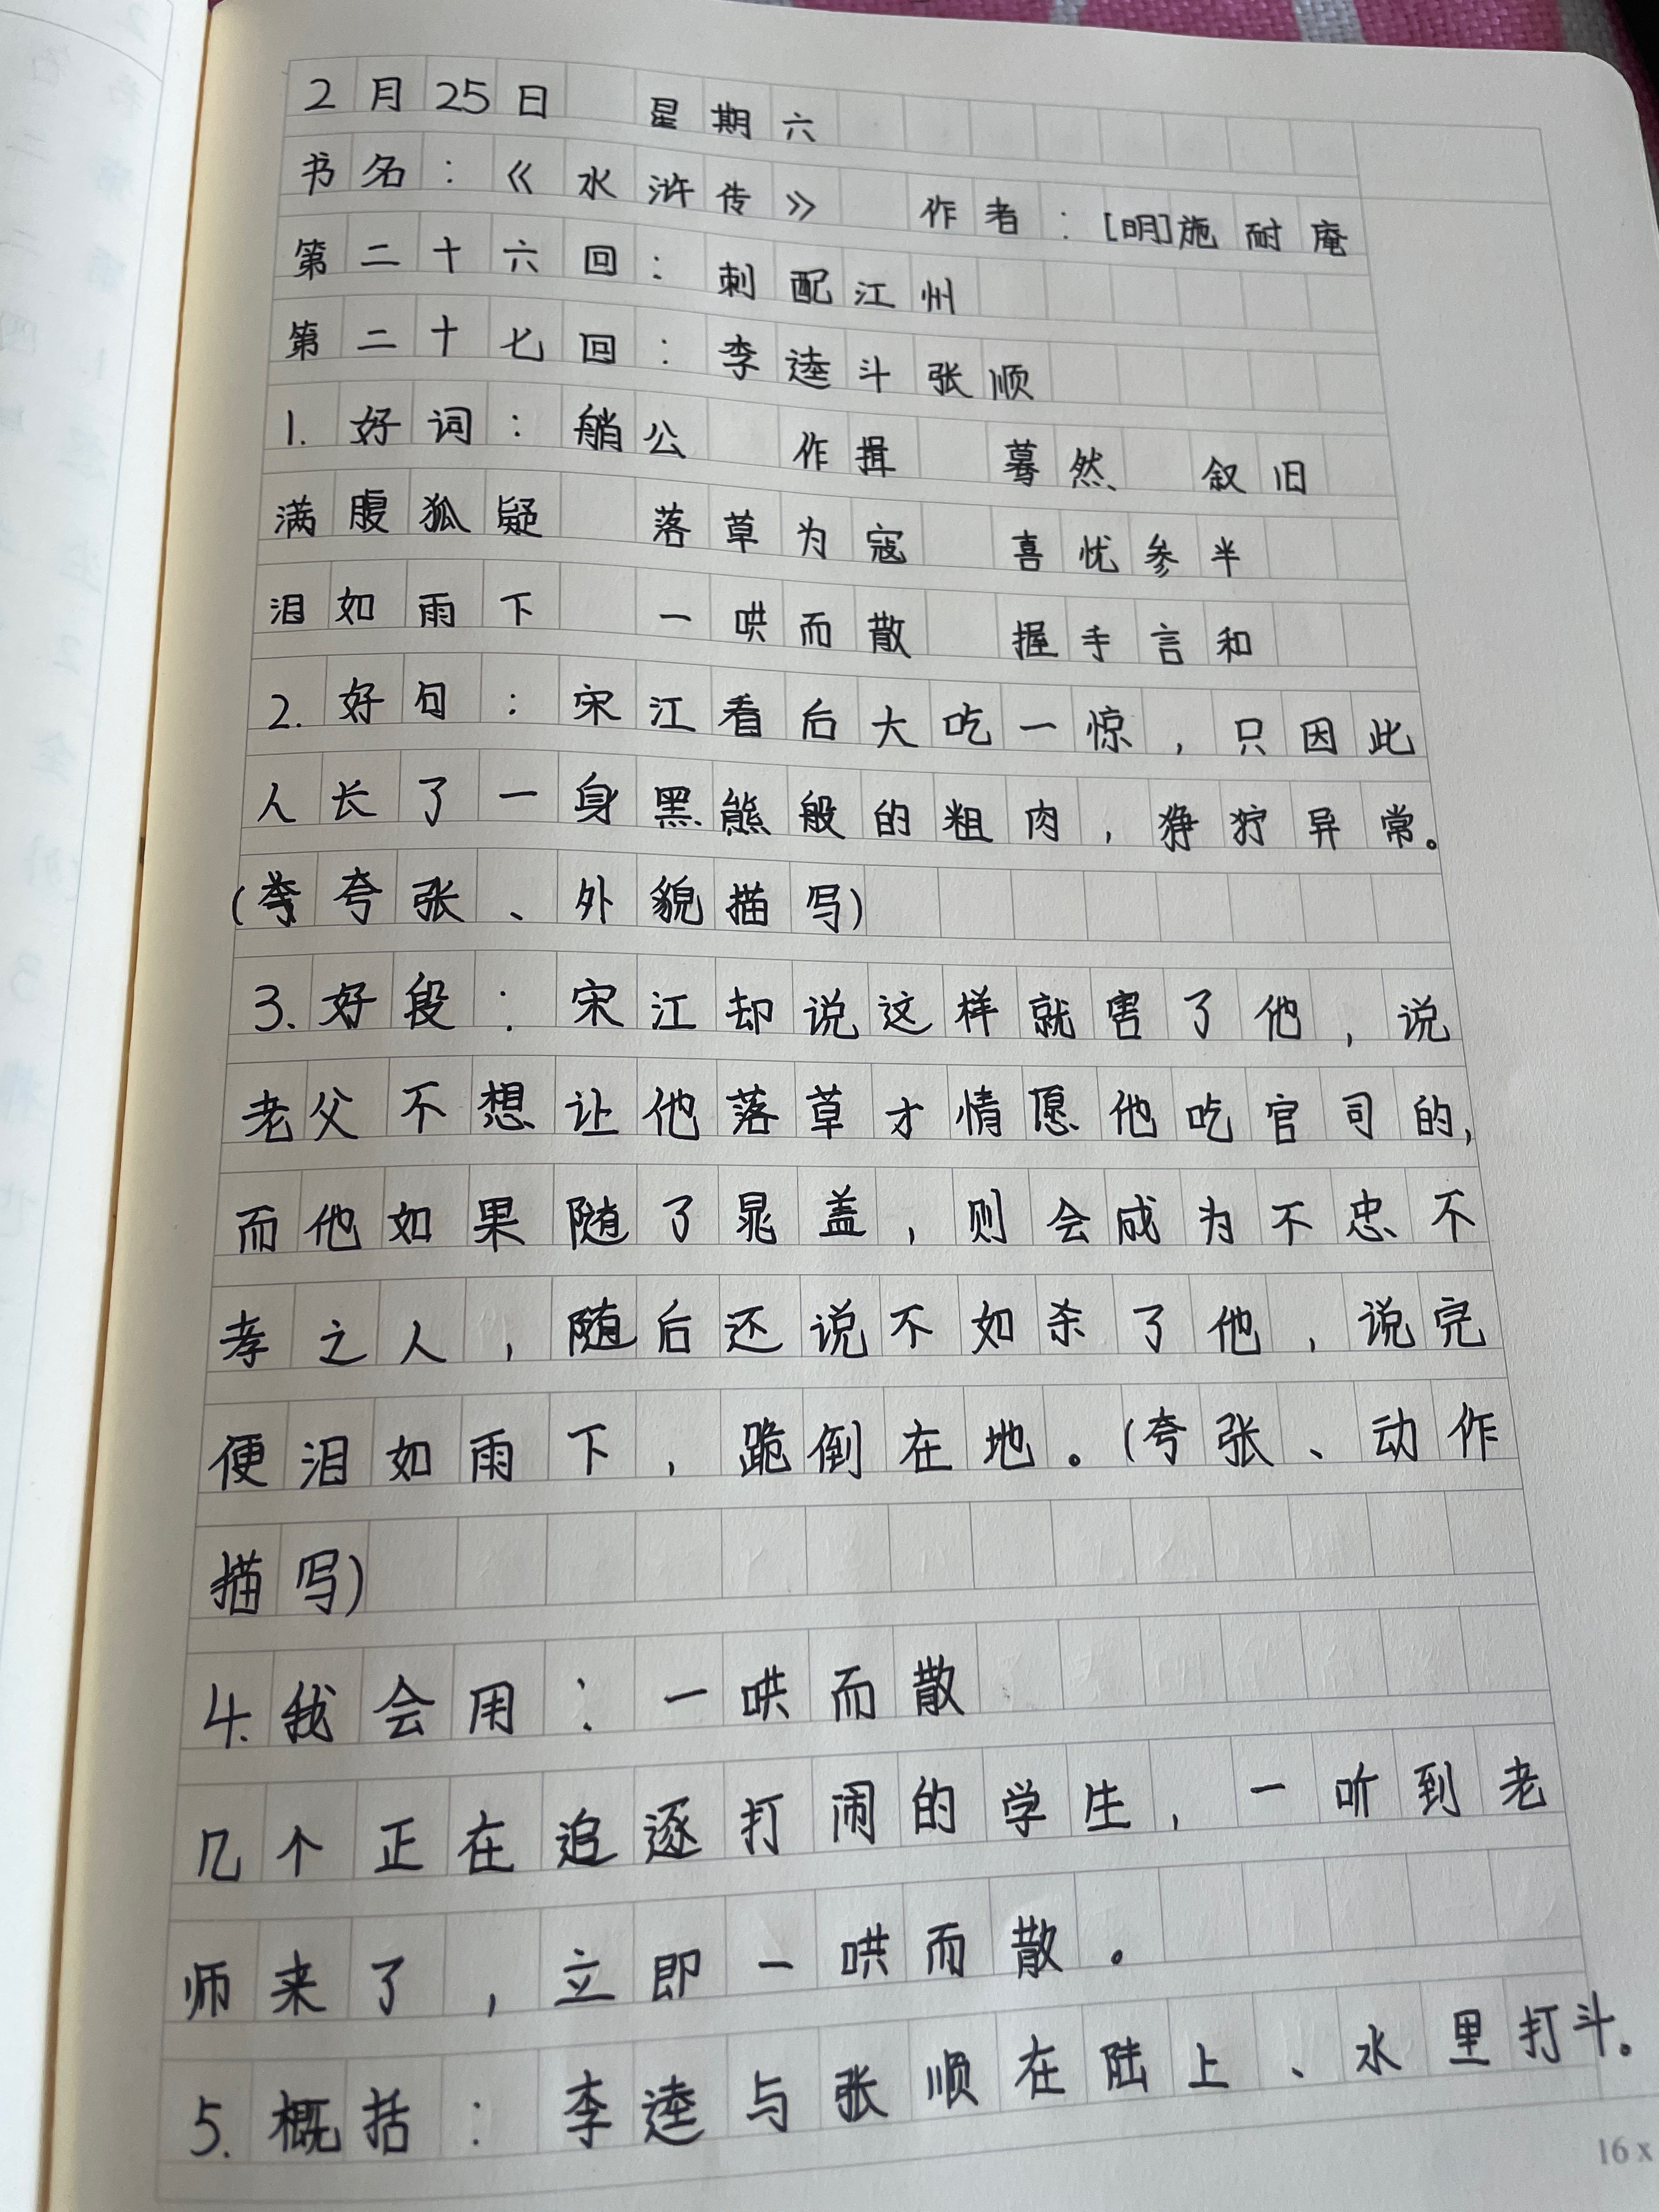 2月25日 星期六
书名：《水浒传》 作者：[明]施耐庵
第二十六回：刺配江州
第二十七回：李逵斗张顺
1. 好词：艄公 作揖 蓦然 叙旧
满腹狐疑 落草为寇 喜忧参半
泪如雨下 一哄而散 握手言和
2. 好句：宋江看后大吃一惊，只因此
人长了一身黑熊般的粗肉，狰狞异常。
(夸张、外貌描写)
3. 好段：宋江却说这样就害了他，说
老父不想让他落草才情愿他吃官司的，
而他如果随了晁盖，则会成为不忠不
孝之人，随后还说不如杀了他，说完
便泪如雨下，跪倒在地。(夸张、动作
描写)
4. 我会用：一哄而散
几个正在追逐打闹的学生，一听到老
师来了，立即一哄而散。
5. 概括：李逵与张顺在陆上、水里打斗。
16 x